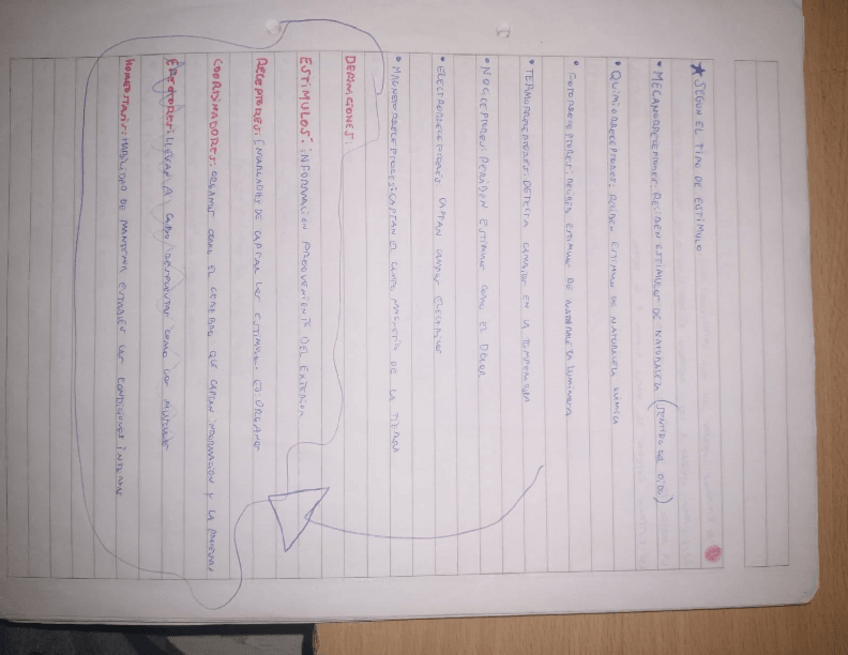 ★ SEGUN EL TIPO DE ESTÍMULO
• MECANORRECEPTORES: RECIBEN ESTIMULOS DE NATURALEZA (SENTIDO DEL OIDO)
• QUIMIORRECEPTORES: RECIBEN ESTIMULOS DE NATURALEZA QUIMICA
• FOTORRECEPTORES: RECIBEN ESTIMULOS DE NATURALEZA LUMINOSA
• TERMORRECEPTORES: DETECTA CAMBIOS EN LA TEMPERATURA
• NOCICEPTORES: PERCIBEN ESTIMULOS COMO EL DOLOR
• ELECTRORRECEPTORES: CAPTAN CAMPOS ELECTRICOS
• MAGNETORRECEPTORES: CAPTAN EL CAMPO MAGNETICO DE LA TIERRA
DEFINICIONES:
ESTÍMULOS: INFORMACION PROVENIENTE DEL EXTERIOR
RECEPTORES: ENCARGADOS DE CAPTAR LOS ESTIMULOS EJ: ORGANOS
COORDINADORES: ORGANOS COMO EL CEREBRO QUE CAPTAN INFORMACION Y LA PROCESAN
EFECTORES: LLEVAN A CABO COMO LOS MUSCULOS
HOMEOSTASIS: HABILIDAD DE MANTENER ESTABLES LAS CONDICIONES INTERNAS